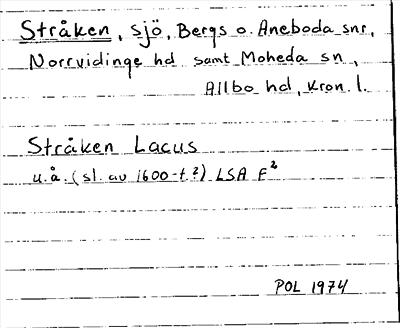 Stråken, sjö, Bergs o. Aneboda snr,
Norrvidinge hd samt Moheda sn,
Allbo hd, Kron. l.
Stråken Lacus
u.å. (sl. av 1600-t.?) LSA F²
POL 1974